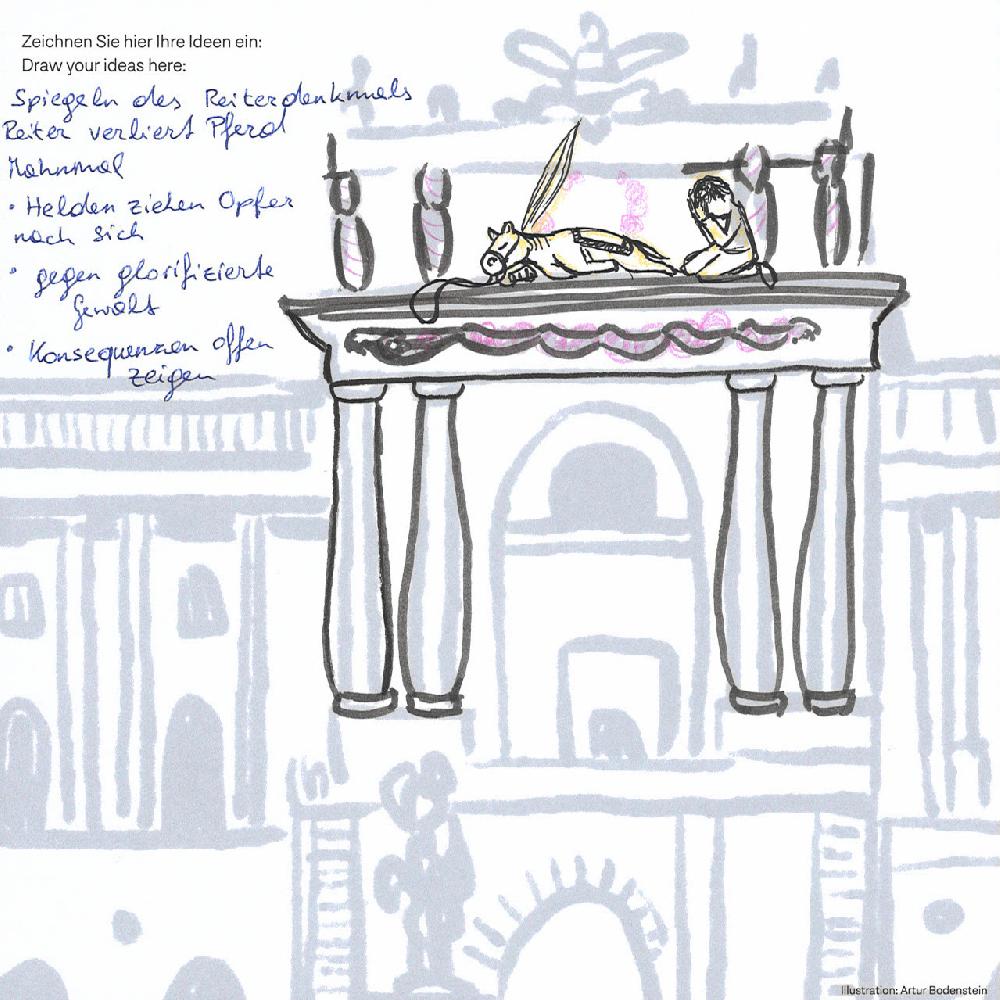 Zeichnen Sie hier Ihre Ideen ein:
Draw your ideas here:
Spiegeln des Reiterdenkmals
Reiter verliert Pferd
Mahnmal
• Helden ziehen Opfer
nach sich
• gegen glorifizierte
Gewalt
• Konsequenzen offen
zeigen
Illustration: Artur Bodenstein